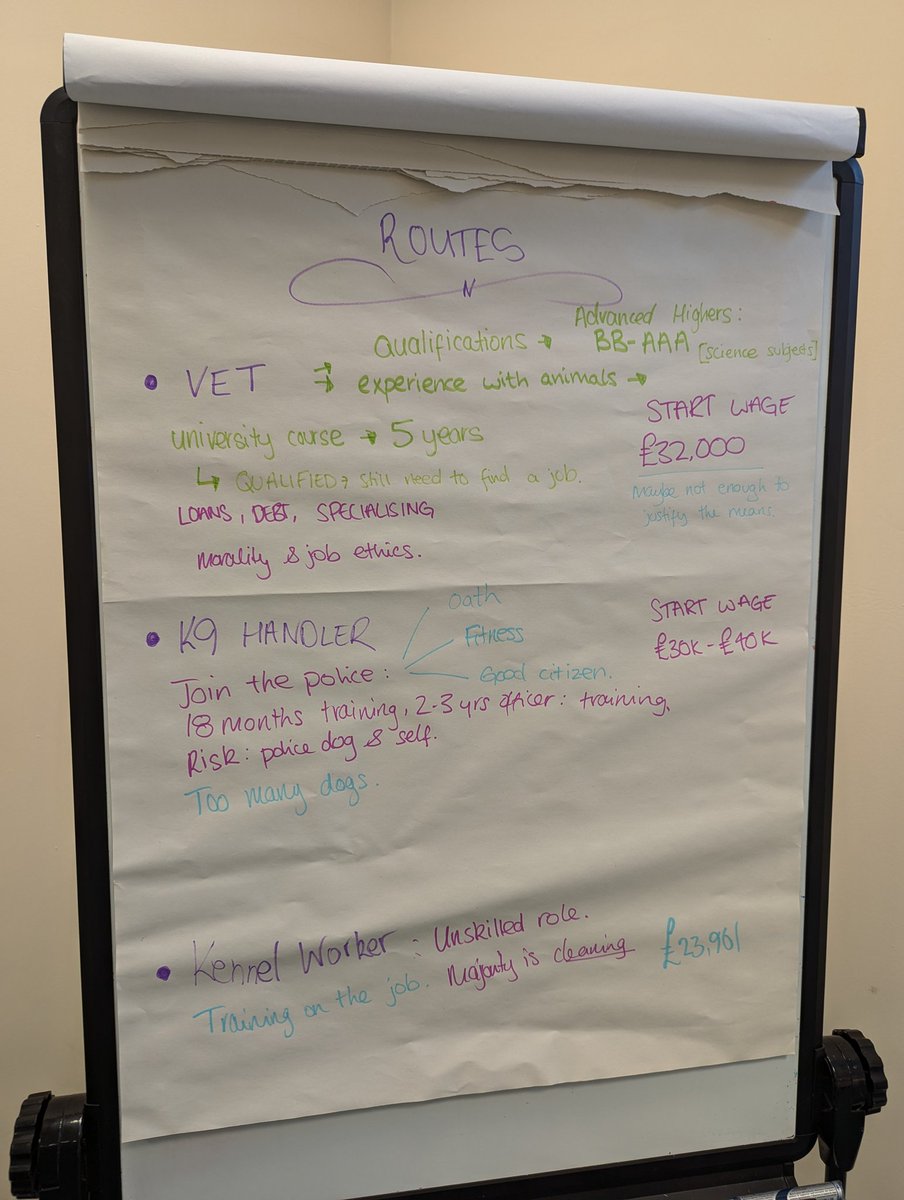 ROUTES
N
Advanced Highers:
Qualifications → BB-AAA [science subjects]
• VET → experience with animals →
START WAGE
university course → 5 years
£32,000
↳ QUALIFIED → still need to find a job.
Maybe not enough to
justify the means.
LOANS, DEBT, SPECIALISING
Morality & job ethics.
Oath
START WAGE
• K9 HANDLER
Fitness
£30K-£40K
Join the police:
Good citizen.
18 months training, 2-3 yrs officer: training,
Risk: police dog & self.
Too many dogs.
• Kennel Worker: Unskilled role.
£23,961
Training on the job. Majority is cleaning